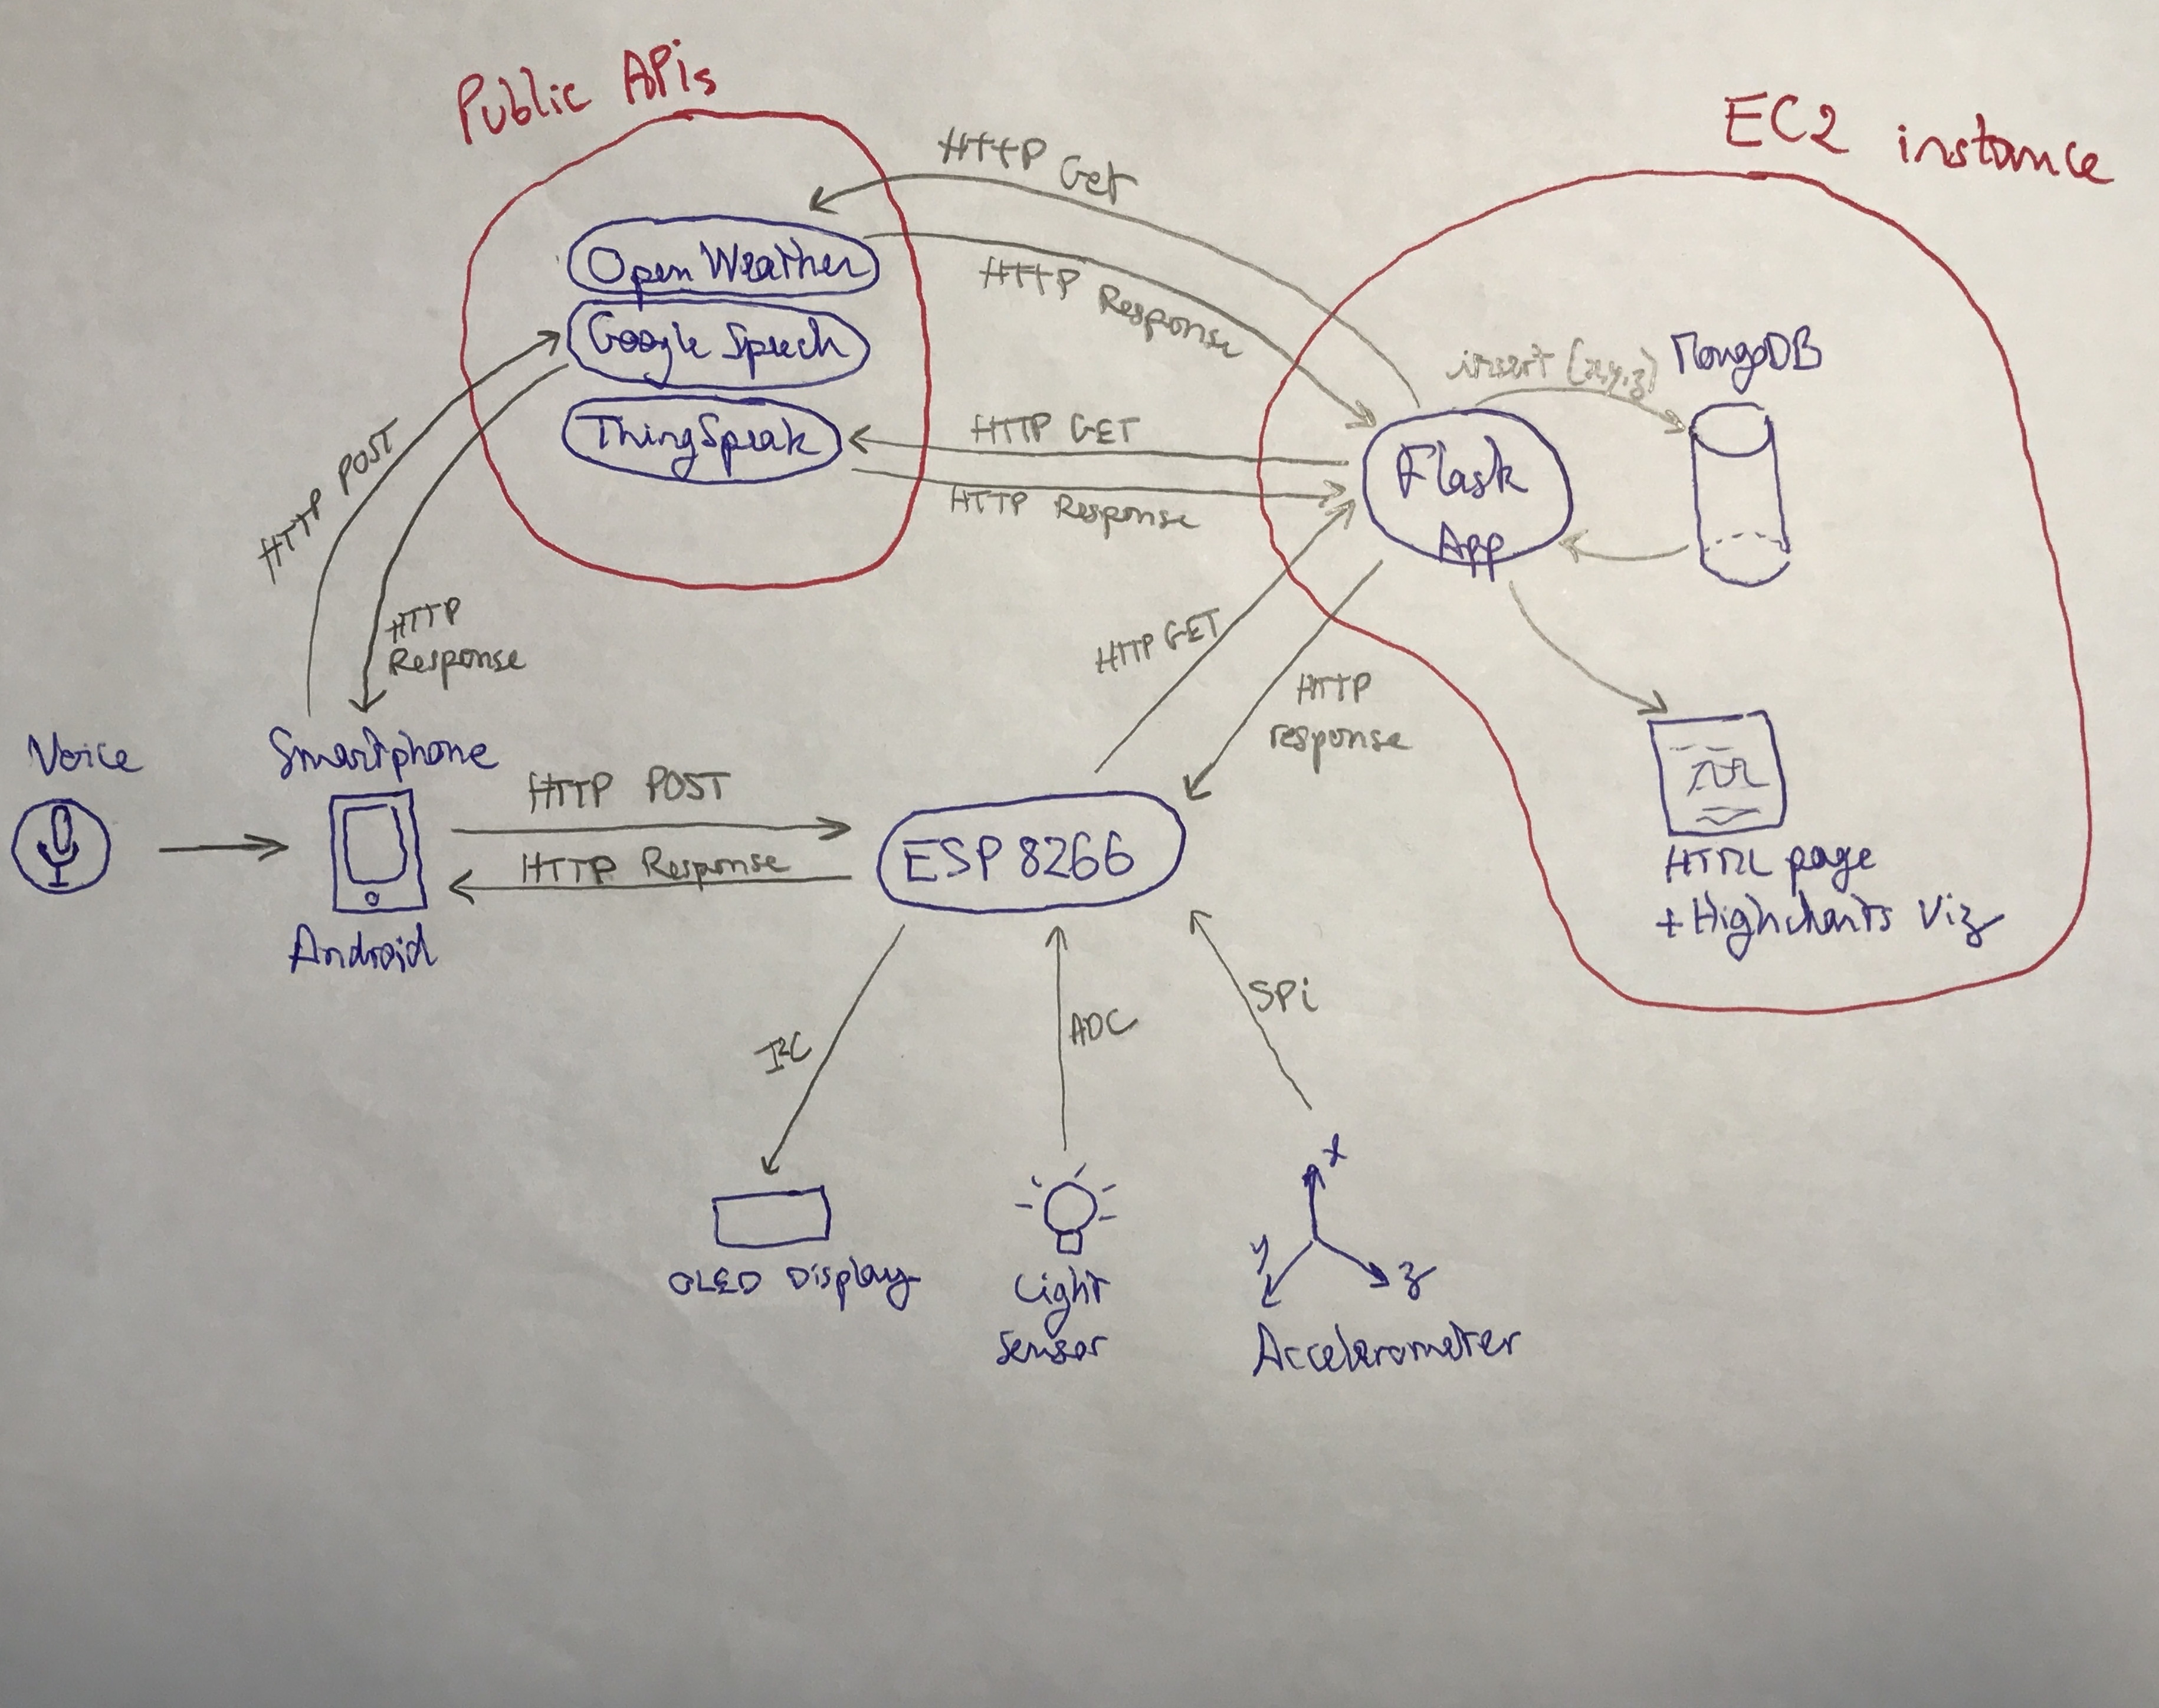 Public APis
EC2 instance
HTTP Get
Open Weather
HTTP Response
Google Speech
insert (x,y,z)
MongoDB
ThingSpeak
HTTP GET
HTTP Response
Flask
App
HTTP POST
HTTP
Response
HTTP GET
HTTP
response
Voice
Smartphone
Android
HTTP POST
HTTP Response
ESP 8266
HTML page
+ Highcharts Viz
I2C
ADC
SPi
OLED Display
Light
Sensor
x
y
z
Accelerometer